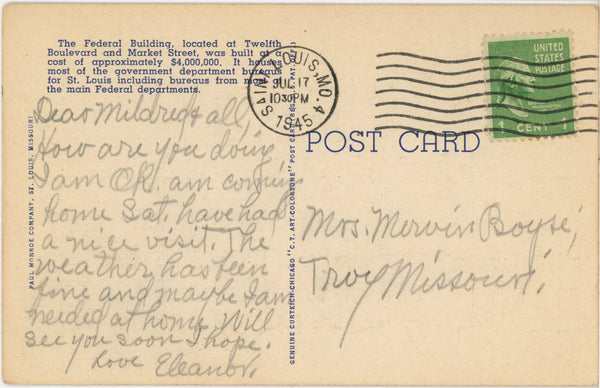 The Federal Building, located at Twelfth
Boulevard and Market Street, was built at a
cost of approximately $4,000,000. It houses
most of the government department bureaus
for St. Louis including bureaus from most of
the main Federal departments.
Dear Mildred & all,
How are you doing
I am OK. am coming
home Sat. have had
a nice visit. The
weather has been
fine and maybe I am
needed at home. Will
see you soon I hope.
Love Eleanor.
PAUL MONROE COMPANY, ST. LOUIS, MISSOURI
GENUINE CURTEICH-CHICAGO "C.T. ART-COLORTONE" POST CARD PAT.
SAINT LOUIS, MO. 4
JUL 17
1030PM
1945
UNITED
STATES
POSTAGE
1 CENT 1
POST CARD
Mrs. Mervin Boyse,
Troy Missouri.